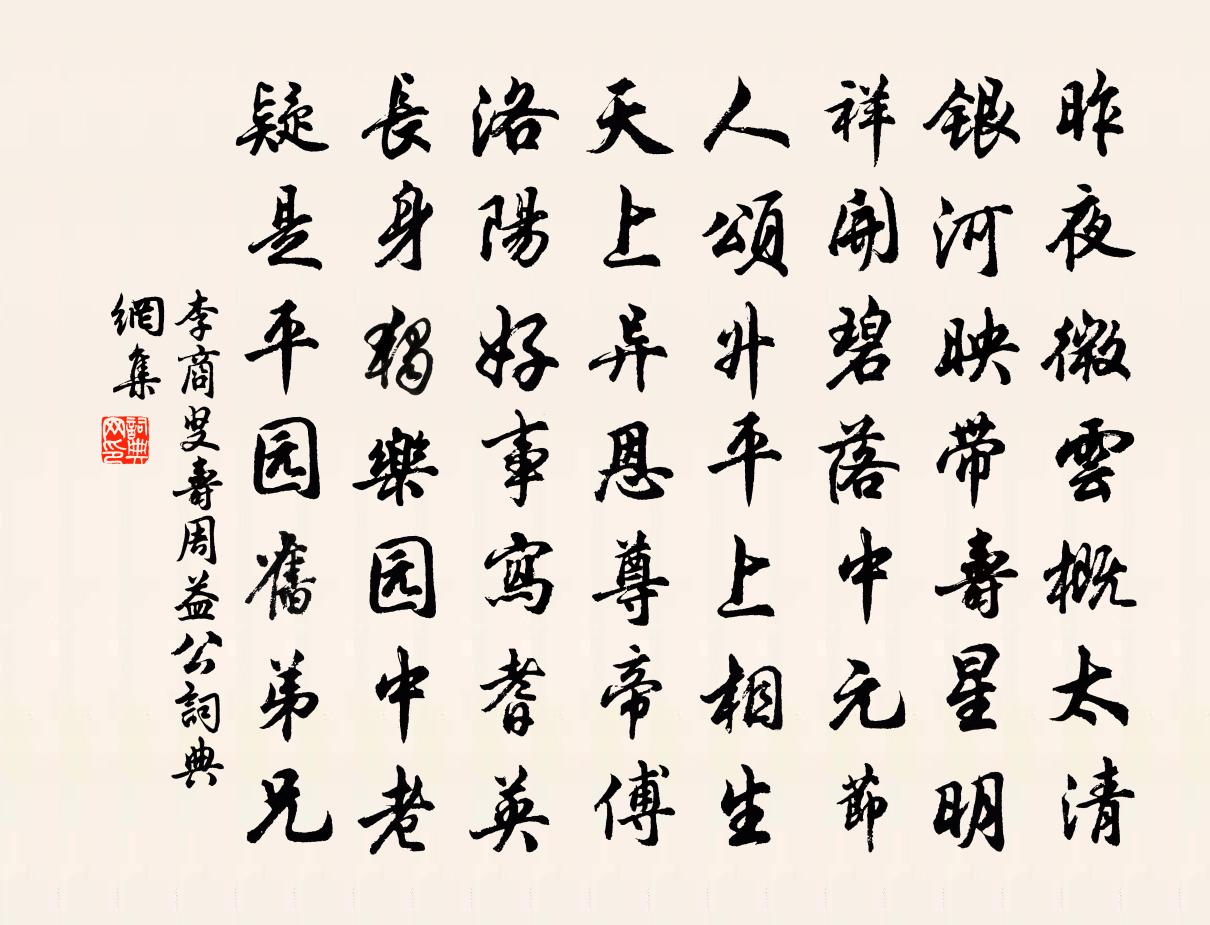 昨夜微雲概太清
銀河映带壽星明
祥開碧落中元節
人頌升平上相生
天上异恩尊帝傅
洛陽好事寫耆英
長身独樂园中老
疑是平园舊弟兄
李商叟壽周益公詞典
網集
詞典
网印